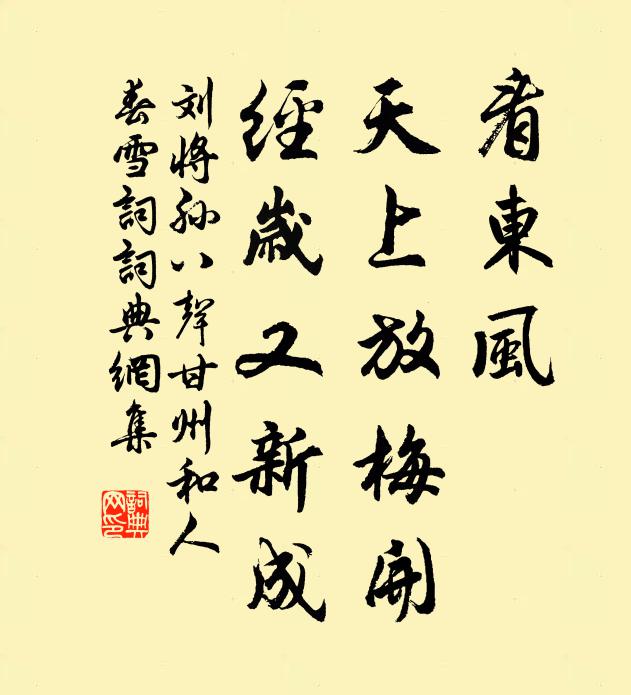 看東風
天上放梅開
經歲又新成
刘將孙八聲甘州和人
春雪詞詞典網集
詞典
网印